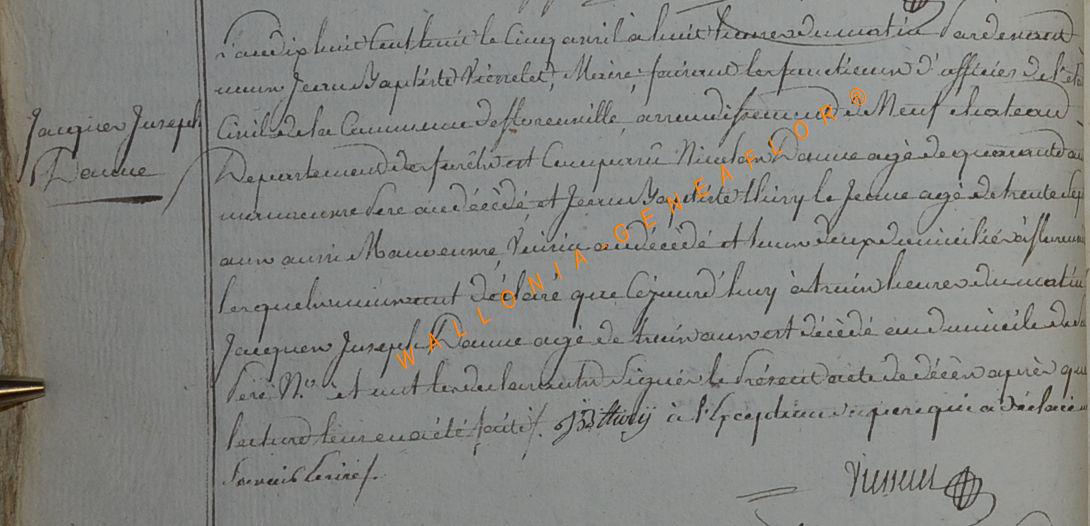 L'an dix huit cent huit le cinq avril à huit heures du matin Pardevant
nous Jean Baptiste Maire faisant les fonctions d'officier de l'ét
Civil de la Commune de florenville, arrondissement de Neufchateau
Jacques Joseph
Danue
Département des forêts est Comparu Nicolas Danue agé de quarante
manoeuvre Pere au décédé et Jean Baptiste thiry le Jeune agé de trente
ans aussi Manoeuvre Voisin au décédé et tous deux domiciliés à florenv
lesquels nous ont déclaré que Cejourd'huy à trois heures du matin
Jacques Joseph Danue agé de trois ans est décédé au domicile de
Pere et ont les déclarants Signés le Présent acte de décès après qu
lecture leur en a été faite. JBthiry à l'Exception du pere qui a déclaré
Savoir Ecrire.
WALLONIA GENEAFLOR ®